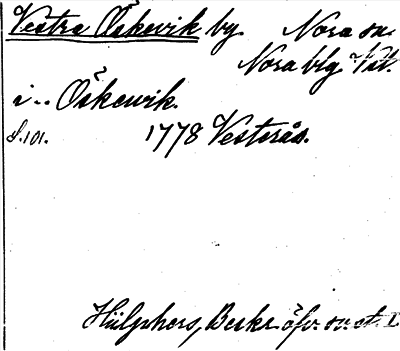 Vestra Öskevik by. Nora sn.
Nora blg Vstl.
i .. Öskewik.
S. 101. 1778 Vesterås.
Hülphers, Beskr. öfv.